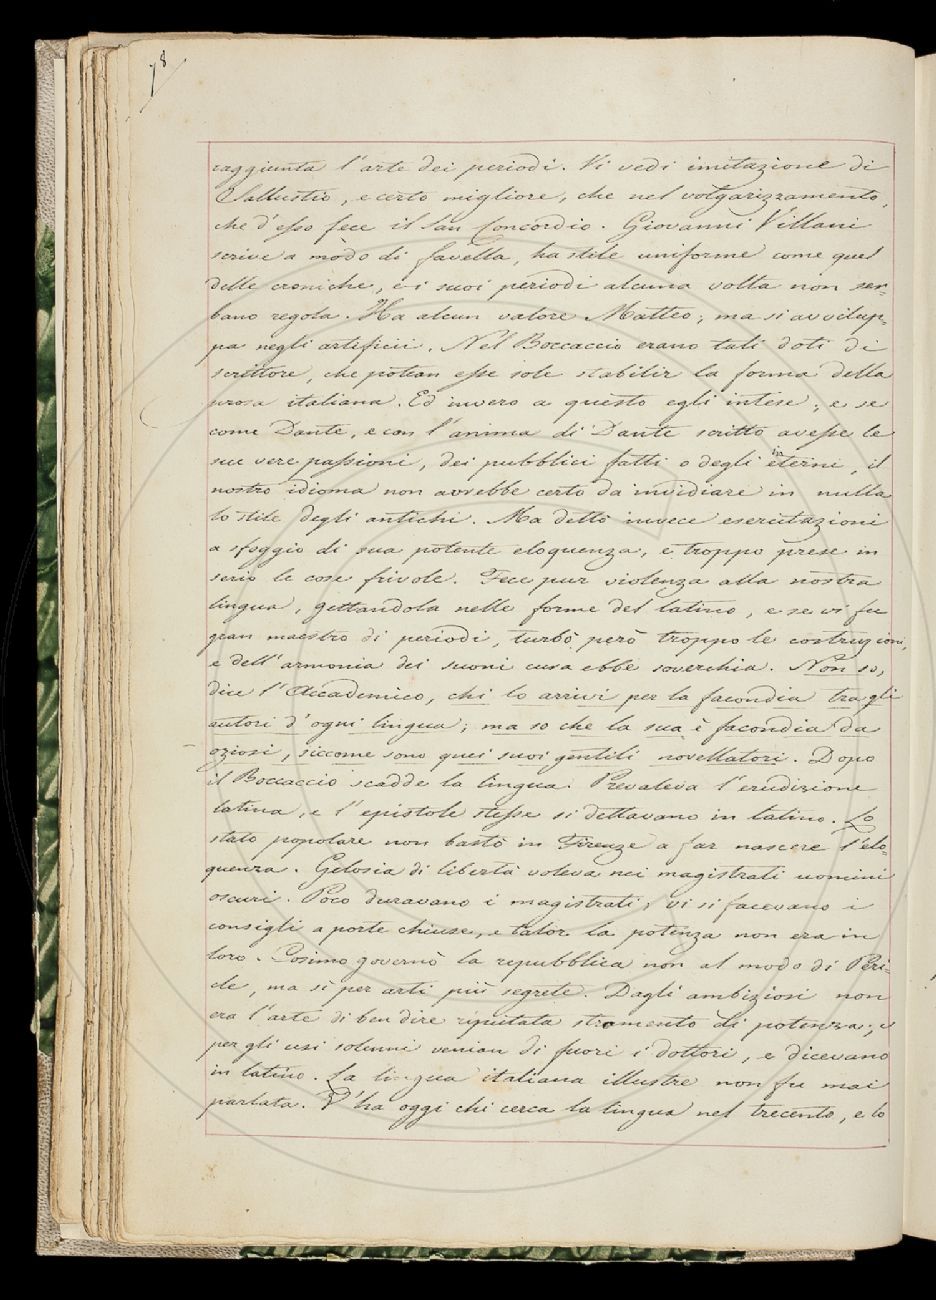 78
raggiunta l'arte dei periodi. Vi vedi imitazione di
Sallustio, e certo migliore, che nel volgarizzamento,
che d'esso fece il San Concordio. Giovanni Villani
scrive a modo di favella, ha stile uniforme come quel
delle croniche, e i suoi periodi alcuna volta non ser=
bano regola. Ha alcun valore Matteo; ma si avvilup=
pa negli artificii. Nel Boccaccio erano tali doti di
scrittore, che potean esse sole stabilir la forma della
prosa italiana. Ed invero a questo egli intese; e se
come Dante, e con l'anima di Dante scritto avesse le
sue vere passioni, dei pubblici fatti o degli interni, il
nostro idioma non avrebbe certo da invidiare in nulla
lo stile degli antichi. Ma dettò invece esercitazioni
a sfoggio di sua potente eloquenza, e troppo prese in
serio le cose frivole. Fece pur violenza alla nostra
lingua, gettandola nelle forme del latino, e se vi fu
gran maestro di periodi, turbò però troppo le costruzioni,
e dell'armonia dei suoni cura ebbe soverchia. Non so,
dice l'Accademico, chi lo arrivi per la facondia tra gli
autori d'ogni lingua; ma so che la sua è facondia da
oziosi, siccome sono quei suoi gentili novellatori. Dopo
il Boccaccio scadde la lingua. Prevaleva l'erudizione
latina, e l'epistole stesse si dettavano in latino. Lo
stato popolare non bastò in Firenze a far nascere l'elo=
quenza. Gelosia di libertà voleva nei magistrati uomini
oscuri. Poco duravano i magistrati; vi si facevano i
consigli a porte chiuse, e talor la potenza non era in
loro. Cosimo governò la repubblica non al modo di Peri-
cle, ma sì per arti più segrete. Dagli ambiziosi non
era l'arte di ben dire riputata stromento di potenza; e
per gli usi solenni venian di fuori i dottori, e dicevano
in latino. La lingua italiana illustre non fu mai
parlata. V'ha oggi chi cerca la lingua nel trecento, e lo